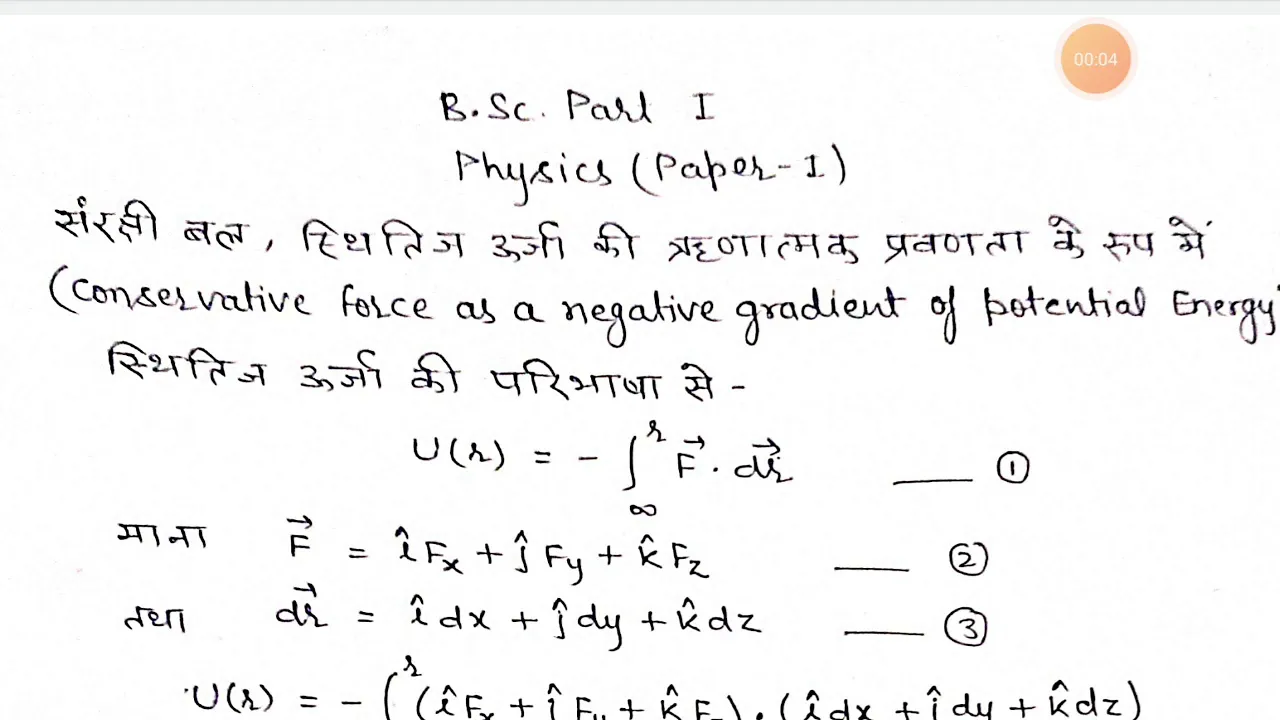 00:04
B.Sc. Part I
Physics (Paper-I)
संरक्षी बल, स्थितिज ऊर्जा की ऋणात्मक प्रवणता के रुप में
(conservative force as a negative gradient of potential Energy)
स्थितिज ऊर्जा की परिभाषा से -
U(r) = - ∫_∞^r F⃗ . dr⃗ ___ ①
माना F⃗ = îFx + ĵFy + k̂Fz ___ ②
तथा dr⃗ = îdx + ĵdy + k̂dz ___ ③
U(r) = - ∫^r (îFx + ĵFy + k̂Fz) . (îdx + ĵdy + k̂dz)